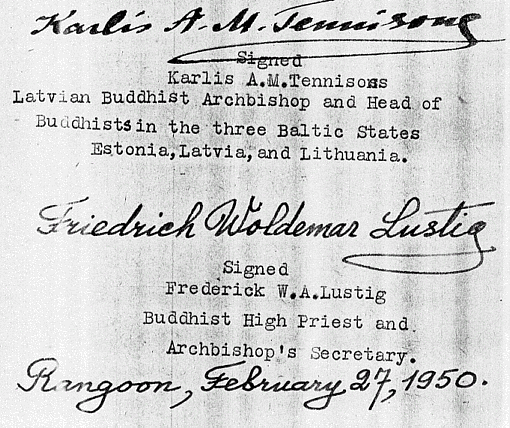 Karlis A. M. Tennisons
Signed
Karlis A.M.Tennisons
Latvian Buddhist Archbishop and Head of
Buddhists in the three Baltic States
Estonia,Latvia,and Lithuania.
Friedrich Woldemar Lustig
Signed
Frederick W.A.Lustig
Buddhist High Priest and
Archbishop's Secretary.
Rangoon, February 27, 1950.